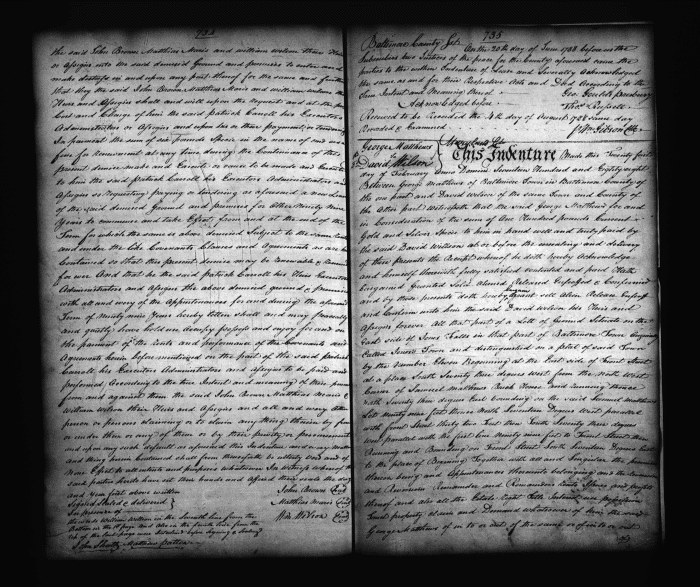 734
the said John Brown Matthias Maris and William Wilson their Heirs
or Assigns into the said demised Ground and premises to enter and
make distress in and upon any part thereof for the same and further
that they the said John Brown Matthias Maris and William Wilson
Heirs and Assigns shall and will upon the request and at the
Cost and Charge of him the said Patrick Carroll his Executors
Administrators or Assigns and upon his or their payment
in Parliament the sum of six pounds Specie in the name of
fine for renewment at any time during the Continuance of the
present demise make and Execute or cause to be made and Executed
to him the said Patrick Carroll his Executors Administrators and
Assigns requesting paying or tendering as aforesaid a new lease
of the said demised Ground and premises for other Ninety Nine
Years to commence and take Effect from and at the end of the
Term for which the same is above demised Subject to the same
and under the like Covenants Clauses and Agreements as are
Contained so that this present demise may be renewable
for ever And that he the said Patrick Carroll his Heirs Executors
Administrators and Assigns the above demised ground and premises
with all and every of the Appurtenances for and during the aforesaid
Term of Ninety nine Years hereby letten shall and may peaceably
and quietly have hold use Occupy possess and enjoy for and on
the payment of the rents and performance of the Covenants and
Agreements herein before mentioned on the part of the said Patrick
Carroll his Executors Administrators and Assigns to be paid and
performed According to the true Intent and meaning of these presents
from and against them the said John Brown Matthias Maris &
William Wilson their Heirs and Assigns and all and every other
person or persons claiming or to claim any thing therein by from
or under them or any of them or by their
and upon any such default as aforesaid this Indenture and every matter
and thing herein Contained shall from thenceforth be utterly void and of
None Effect to all intents and purposes whatsoever In witness whereof the
said parties hereto have set their hands and Affixed their seals the day
and Year first above written
Signed Sealed & delivered
In presence of
John Brown
Matthias Maris
Wm. Wilson
the words William Wilson in the seventh line from the
Bottom in the 1st page And also in the fourth line from the
Top of the last page were interlined before signing & Sealing
John Shultz Mathias
735
Baltimore County Sct. On the 20th day of June 1788 before us the
Subscribers two Justices of the peace for the County aforesaid came the
parties to the within Indenture of Lease and Severally Acknowledged
the same as and for their Respective Acts and Deed According to the
true Intent and Meaning thereof
Acknowledged before
Geo. Gouldsh. Presbury
Thos. Russell
Received to be Recorded the 4th day of August 1788 same day
Recorded & Examined
Wm Gibson Clk
George Matthews
To
David Wilson
Maryland Sc
This Indenture Made this Twenty first
day of February Anno Domini Seventeen Hundred and Eightyeight
Between George Matthews of Baltimore Town in Baltimore County of
the one part and David Wilson of the same Town and County of
the Other part Witnesseth that the said George Matthews for and
in Consideration of the sum of One Hundred pounds Current
Gold and Silver Specie to him in hand well and truly paid by
the said David Wilson at or before the ensealing and delivery
of these presents the Receipt whereof he doth hereby Acknowledge
and himself therewith fully satisfied contented and paid Hath
Bargained Granted Sold Aliened Released Enfeoffed & Confirmed
and by these presents doth hereby Grant sell Alien Release Enfeoff
and Confirm unto him the said David Wilson his Heirs and
Assigns forever All that part of a Lott of Ground Situate on the
East side of Jones Falls in that part of Baltimore Town
Called Jones's Town and distinguished on a plat of said Town
by the Number Eleven Beginning at the East side of Front Street
at a place South Seventy three degrees West from the North West
Corner of Samuel Matthews Brick House and running thence
North Seventy three degrees East bounding on the said Samuel Matthews
Lott ninety nine feet thence North Seventeen Degrees West paralel
with front Street thirty two feet then South Seventy three degrees
West paralel with the first line Ninety nine feet to Front Street then
Running and Bounding on Front Street South Seventeen Degrees East
to the place of Beginning Together with all and Singular the
thereon being and Appurtenances thereunto belonging and the
and Reversions Remainder and Remainders Rents Issues and profits
thereof and also all the Estate Right Title Interest use possession
Trust property claim and Demand whatsoever of him the said
George Matthews of in to or out of the same or of in to or out